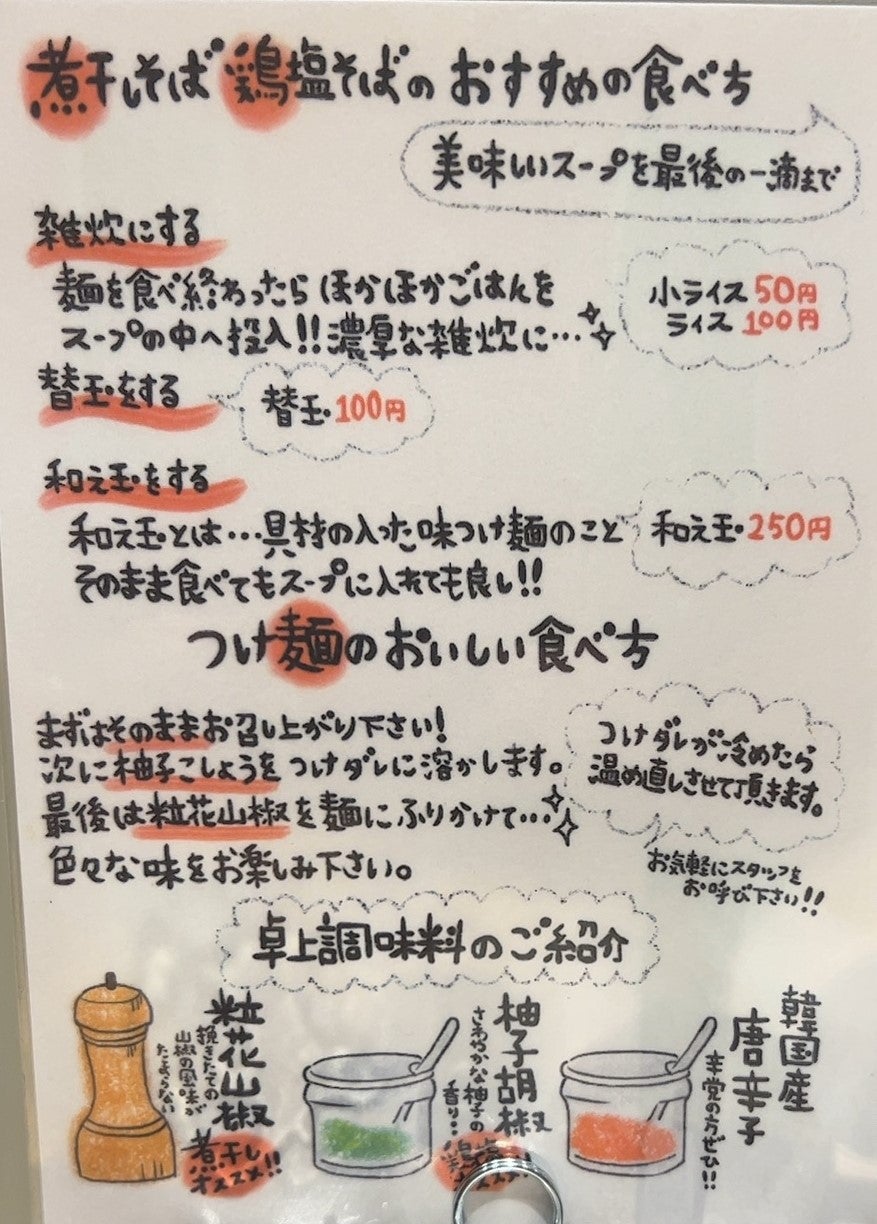 煮干しそば 鶏塩そばの おすすめの食べち
美味しいスープを最後の一滴まで
雑炊にする
麺を食べ終わったら ほかほかごはんを
スープの中へ投入!! 濃厚な雑炊に…
小ライス 50円
ライス 100円
替玉をする
替玉 100円
和え玉をする
和え玉とは…具材の入った味つけ麺のこと
そのまま食べてもスープに入れても良し!!
和え玉 250円
つけ麺のおいしい食べ方
まずはそのままお召し上がり下さい!
次に柚子こしょうをつけダレに溶かします。
最後は粒花山椒を麺にふりかけて…
色々な味をお楽しみ下さい。
つけダレが冷めたら
温め直しさせて頂きます。
お気軽にスタッフを
お呼び下さい!!
卓上調味料のご紹介
粒花山椒
挽きたての
山椒の風味が
たまらない
煮干し
オススメ!!
柚子胡椒
さわやかな柚子の
香り…
鶏塩
韓国産
唐辛子
辛党の方ぜひ!!